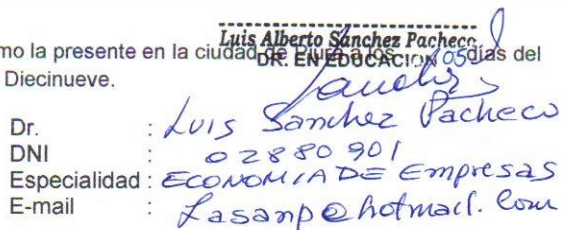 Luis Alberto Sánchez Pacheco
DR. EN EDUCACION
mo la presente en la ciudad de Piura a los 05 días del
Diecinueve.
Dr. : Luis Sanchez Pacheco
DNI : 02880901
Especialidad : ECONOMIA DE Empresas
E-mail : Lasanp@hotmail.com